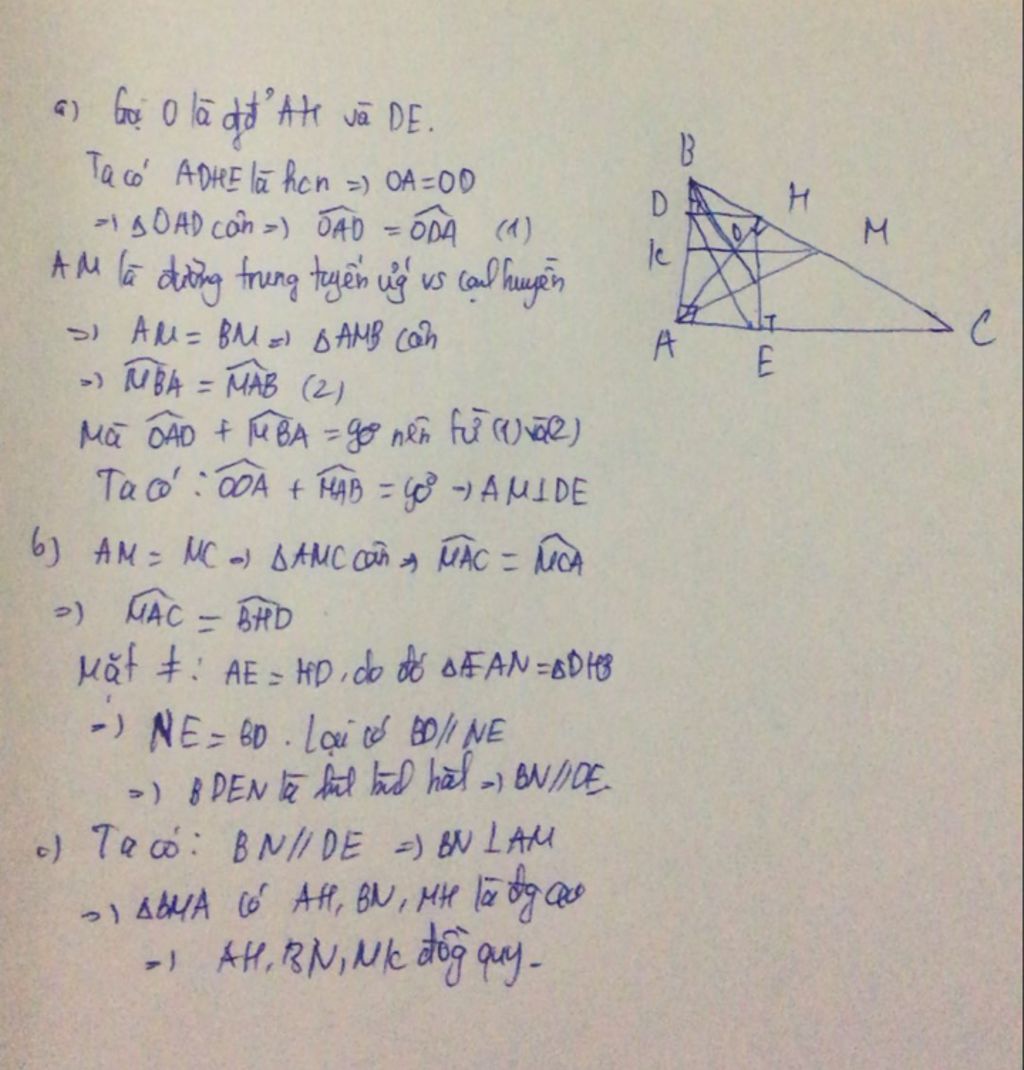 a) Gọi O là gđ° AH và DE.
Ta có ADHE là hcn => OA=OD
=> ΔOAD cân => \widehat{OAD} = \widehat{ODA} (1)
AM là đường trung tuyến ứg vs cạnh huyền
=> AM = BM => ΔAMB cân
=> \widehat{MBA} = \widehat{MAB} (2)
Mà \widehat{OAD} + \widehat{MBA} = 90° nên từ (1) và (2)
Ta có: \widehat{ODA} + \widehat{MAB} = 90° → AM⊥DE
b) AM = MC => ΔAMC cân => \widehat{MAC} = \widehat{MCA}
=> \widehat{MAC} = \widehat{BHD}
Mặt ≠: AE = HD, do đó ΔEAN = ΔDHB
=> NE = BD. Lại có BD // NE
=> BDEN là hình bình hành => BN // DE.
c) Ta có: BN // DE => BN ⊥ AM
=> ΔBMA có AH, BN, MH là đg cao
=> AH, BN, MK đồg quy.
B
D
H
M
O
K
A
E
C